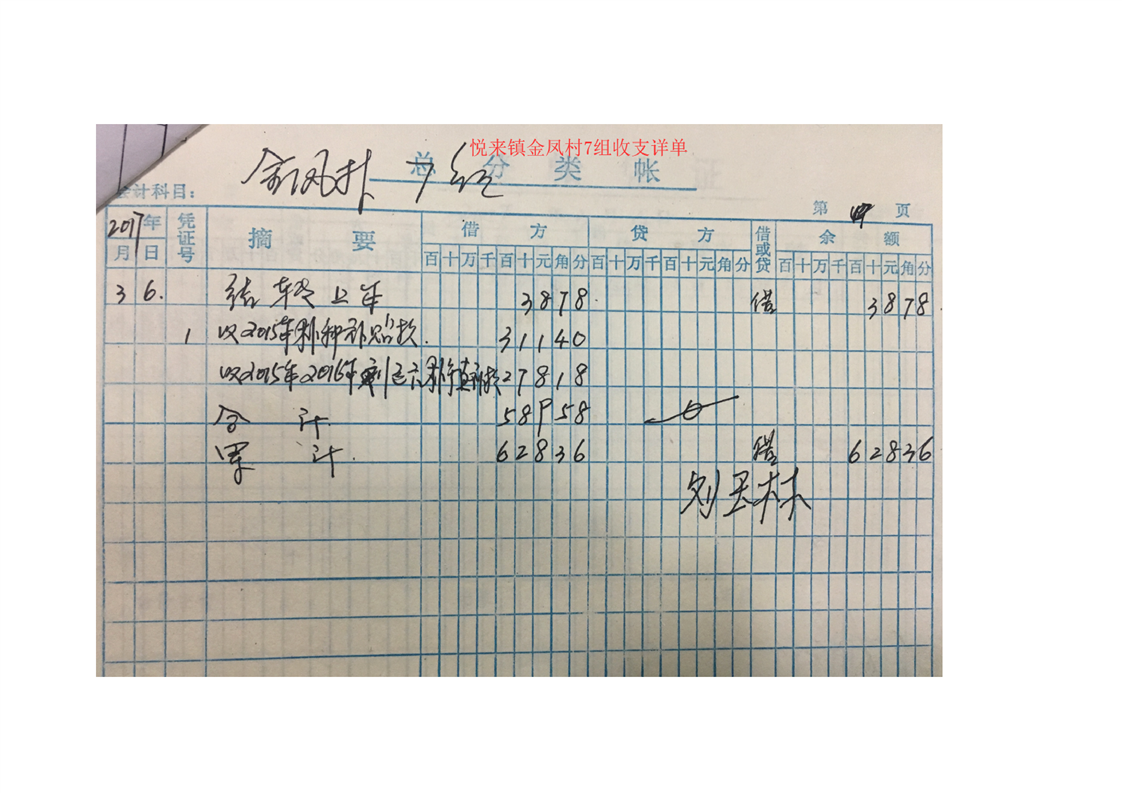 悦来镇金凤村7组收支详单
金凤村 7组
总分类帐
会计科目：
第 页
2017年 凭证号 摘要 借方 贷方 借或贷 余额
月 日 百十万千百十元角分 百十万千百十元角分 百十万千百十元角分
3 6. 结转上年 3878 借 3878
1 收2015年 种补贴款. 31140
收2015年2016年 27818
合计 58958
累计. 62836 借 62836
刘玉林